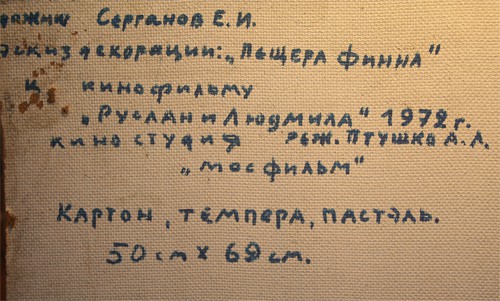 Серганов Е. И.
эскиз декорации: „Пещера Финна"
к кинофильму
„Руслан и Людмила" 1972 г.
киностудия реж. Птушко А. А.
„Мосфильм"
Картон, темпера, пастэль.
50 см х 69 см.